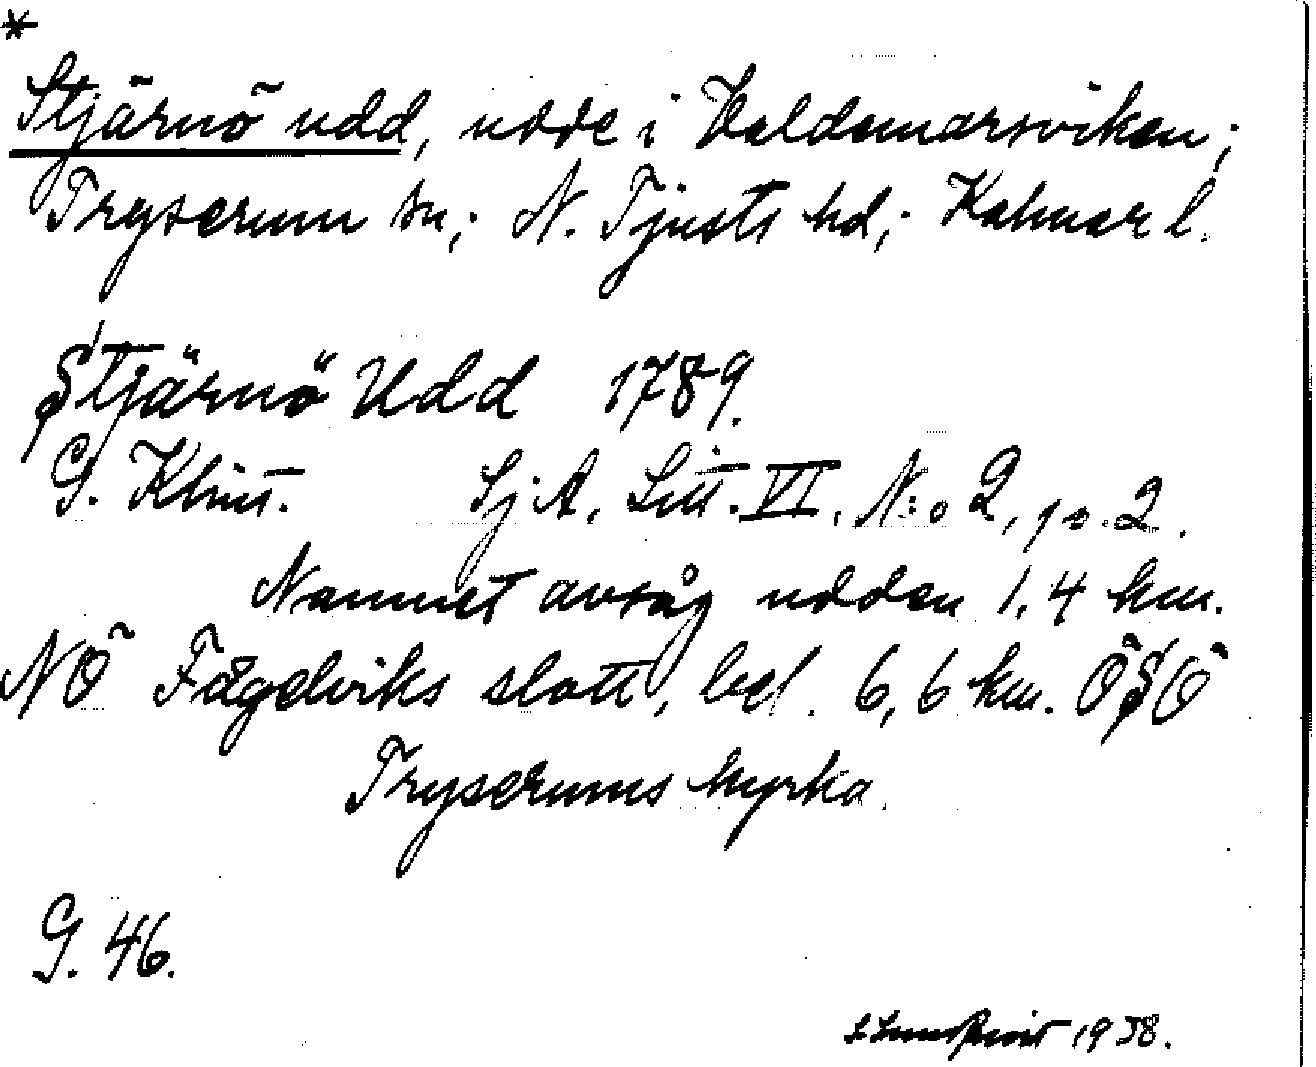 *
Stjärnö udd, udde i Valdemarsviken;
Tryserum sn; N. Tjusts hd; Kalmar l.
Stjärnö Udd 1789.
G. Klint. Sj. A. Litt. VI. N:o 2, p. 2.
Namnet avsåg udden 1,4 km.
NÖ Fågelviks slott, bel. 6,6 km. ÖSÖ
Tryserums kyrka.
G. 46.
S Lundqvist 1938.